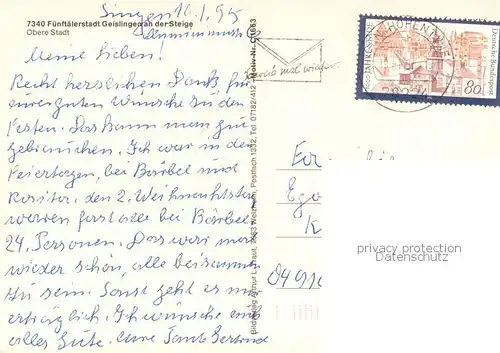 Singen 16.1.95
7340 Fünftälerstadt Geislingen an der Steige
Obere Stadt
Meine Lieben!
Recht herzlichen Dank für
eure guten Wünsche zu den
Festen. Das kann man gut
gebrauchen. Ich war in den
Feiertagen, bei Bärbel und
den 2. Weihnachtstag
waren fast alle bei Bärbel
24 Personen. Das war mal
wieder schön, alle beisammen
zu sein. Sonst geht es mir
erträglich. Ich wünsche euch
alles Gute. eure Tante Gertrud
Schreib mal wieder
Deutsche Bundespost
80
Postfach 1332, Tel 07182/
privacy protection
DatenSchutz